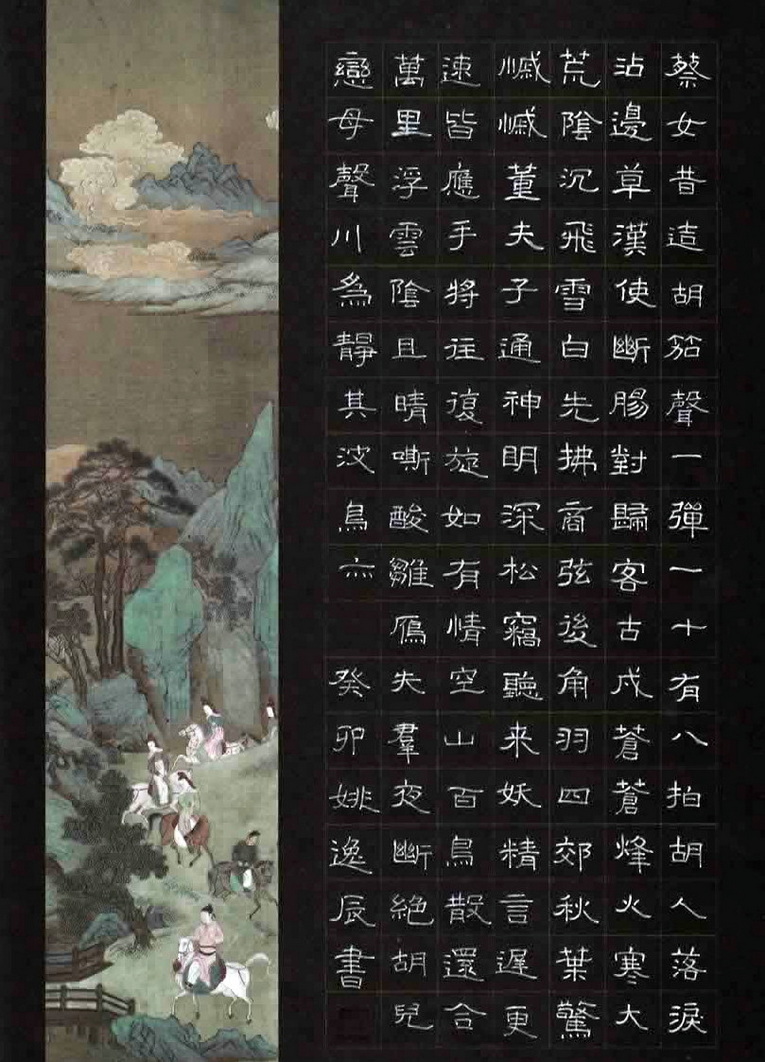 蔡女昔造胡笳聲一彈一十有八拍胡人落淚
沾邊草漢使斷腸對歸客古戍蒼蒼烽火寒大
荒陰沉飛雪白先拂商弦後角羽四郊秋葉驚
慽慽董夫子通神明深松竊聽来妖精言遲更
速皆應手將往復旋如有情空山百鳥散還合
萬里浮雲陰且晴嘶酸雛鴈失羣夜斷絕胡兒
戀母聲川為靜其波鳥亦
癸卯姚逸辰書